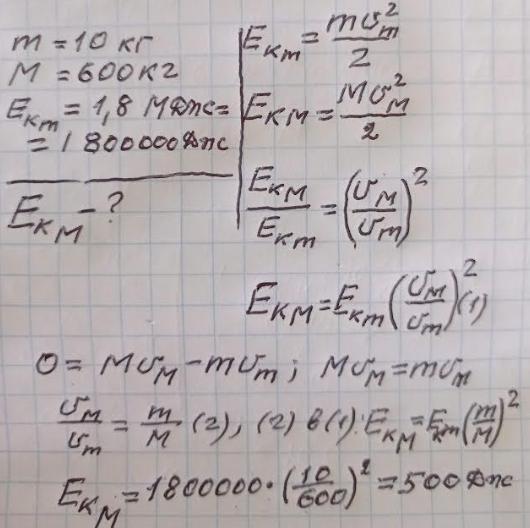 m = 10 кг
M = 600 кг
E_кm = 1,8 МДж =
= 1 800000 Дж
E_кM - ?
E_кm = mv_m^2/2
E_кM = Mv_M^2/2
E_кM/E_кm = (v_M/v_m)^2
E_кM = E_кm (v_M/v_m)^2 (1)
0 = Mv_M - mv_m ; Mv_M = mv_m
v_M/v_m = m/M (2), (2) в (1): E_кM = E_кm (m/M)^2
E_кM = 1800000 · (10/600)^2 = 500 Дж